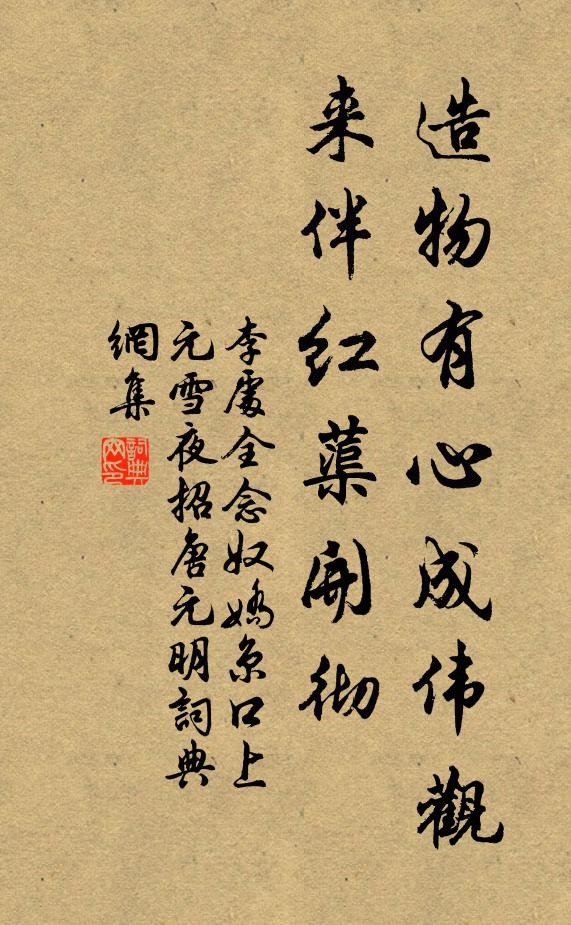 造物有心成伟觀
来伴红蕖開彻
李處全念奴嬌京口上
元雪夜招唐元明詞典
網集
詞典网印